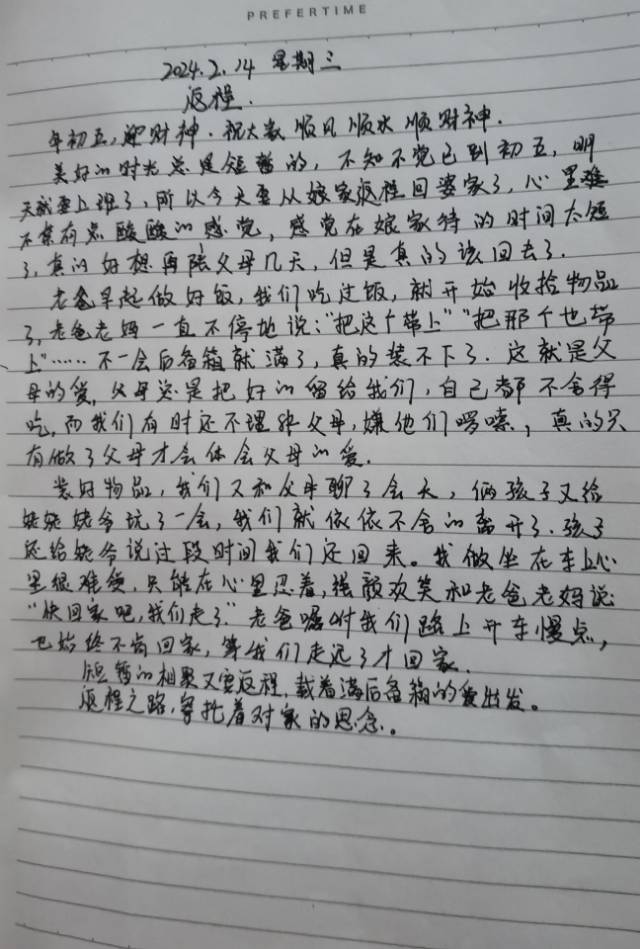 PREFERTIME
2024.2.14 星期三
返程.
年初五,迎财神.祝大家顺风顺水顺财神.
美好的时光总是短暂的,不知不觉已到初五,明
天就要上班了,所以今天要从娘家返程回婆家了,心里难
不禁有点酸酸的感觉,感觉在娘家待的时间太短
了,真的好想再陪父母几天,但是真的该回去了.
老爸早起做好饭,我们吃过饭,就开始收拾物品
了,老爸老妈一直不停地说:"把这个带上""把那个也带
上"……不一会后备箱就满了,真的装不下了.这就是父
母的爱,父母总是把好的留给我们,自己都不舍得
吃,而我们有时还不理解父母,嫌他们啰嗦,真的只
有做了父母才会体会父母的爱.
装好物品,我们又和父母聊了会天,俩孩子又给
姥姥姥爷玩了一会,我们就依依不舍的离开了.孩子
还给姥爷说过段时间我们还回来。我做坐在车上心
里很难受,只能在心里忍着,强颜欢笑和老爸老妈说
"快回家吧,我们走了."老爸嘱咐我们路上开车慢点,
也始终不肯回家,等我们走远了才回家.
短暂的相聚又要返程,载着满后备箱的爱出发。
返程之路,寄托着对家的思念。